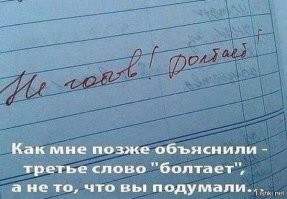 Не готов! Болтает!
Как мне позже объяснили -
третье слово "болтает",
а не то, что вы подумали...